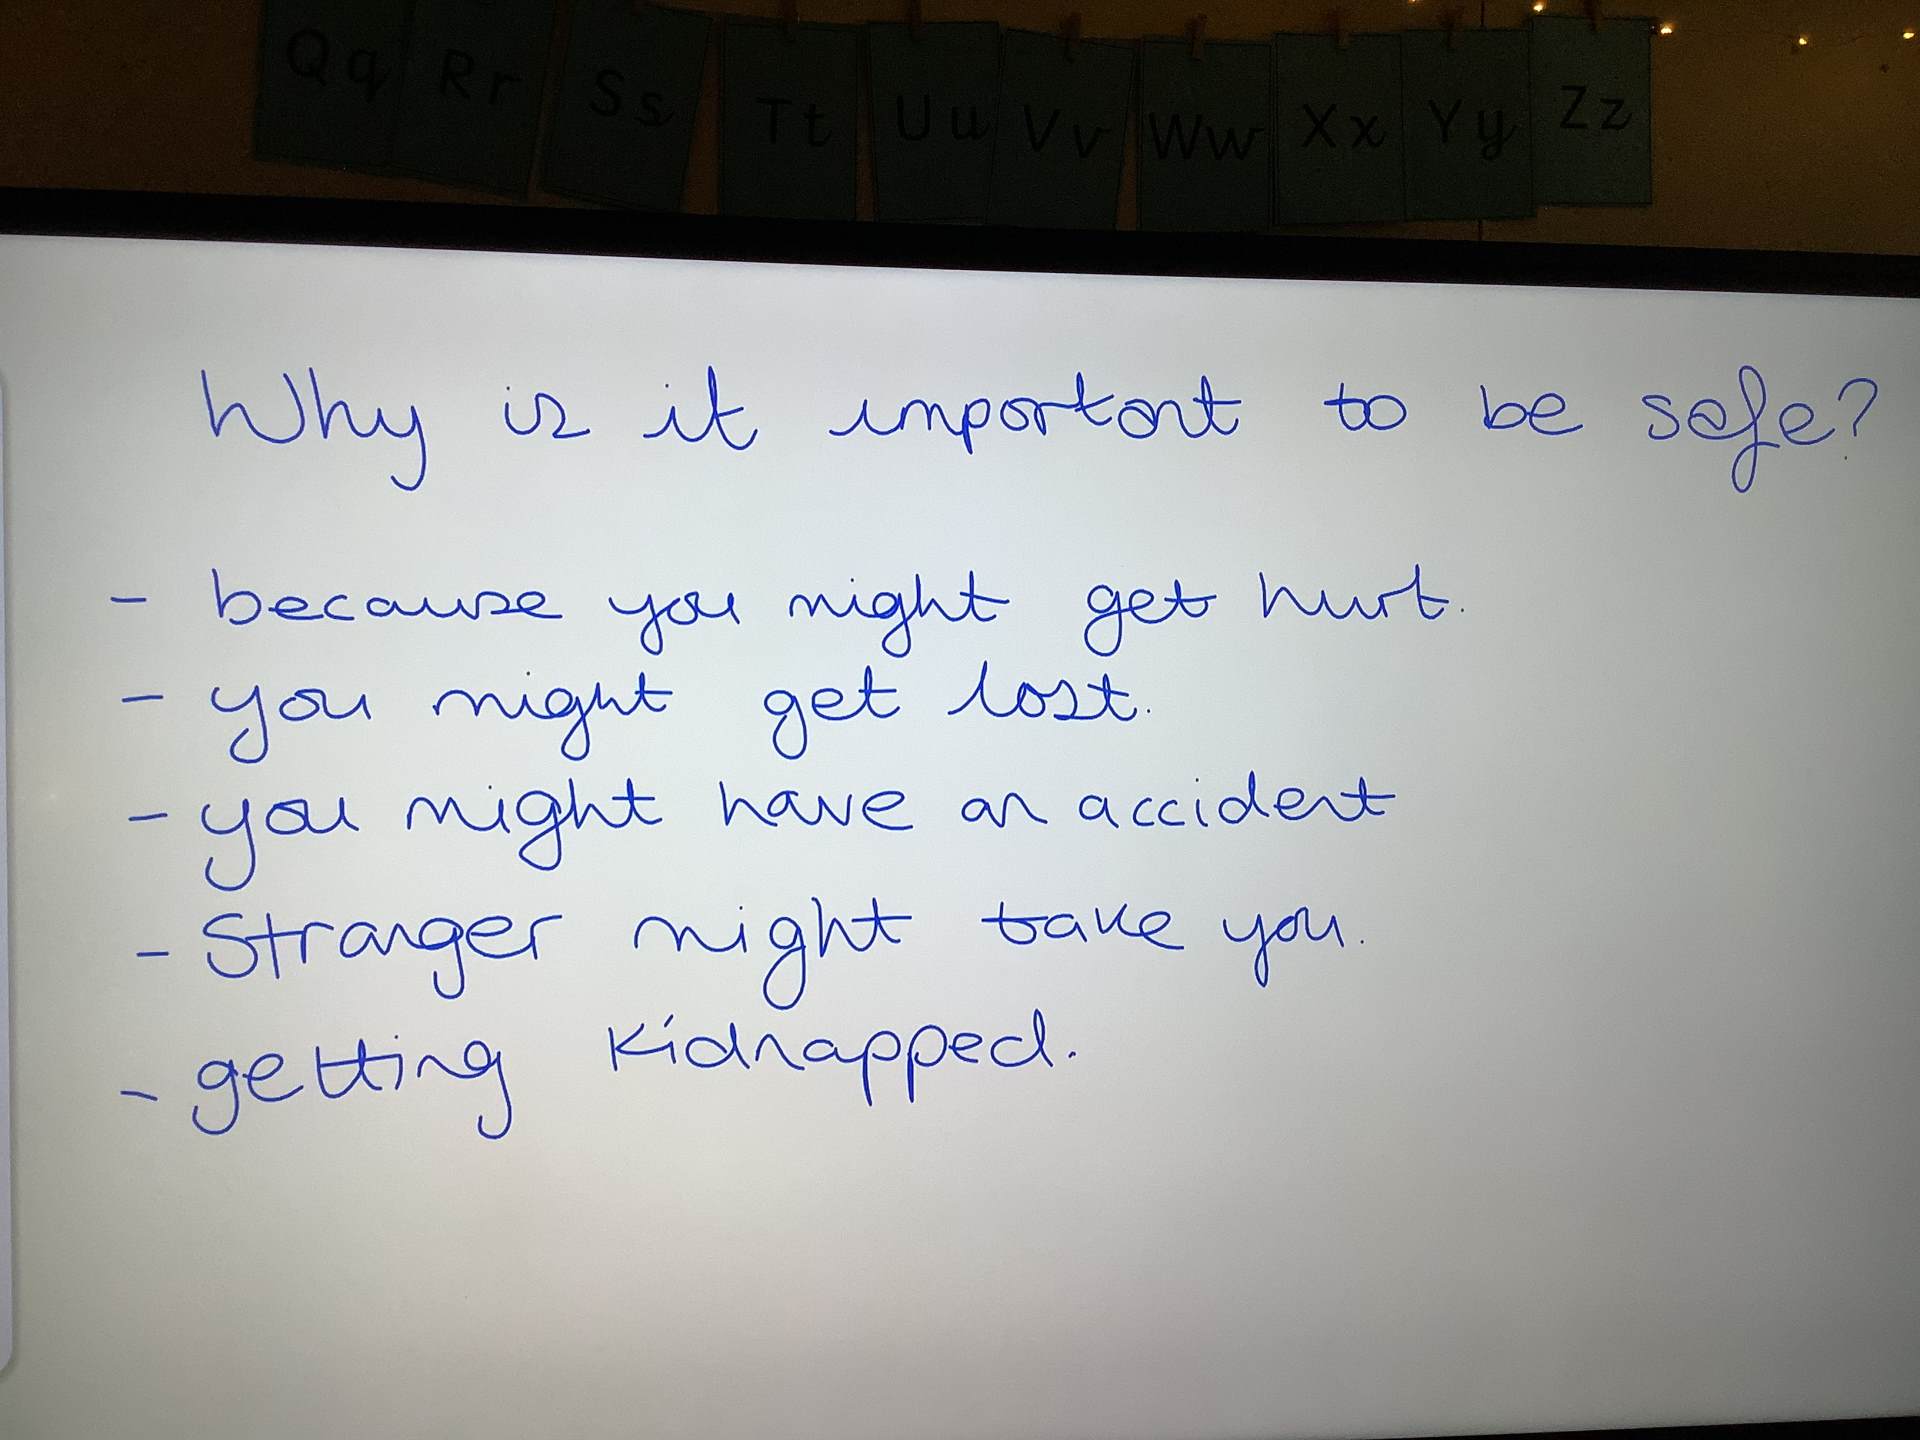 Qq Rr Ss Tt Uu Vv Ww Xx Yy Zz
Why is it important to be safe?
- because you might get hurt.
- you might get lost.
- you might have an accident
- Stranger might take you.
- getting kidnapped.